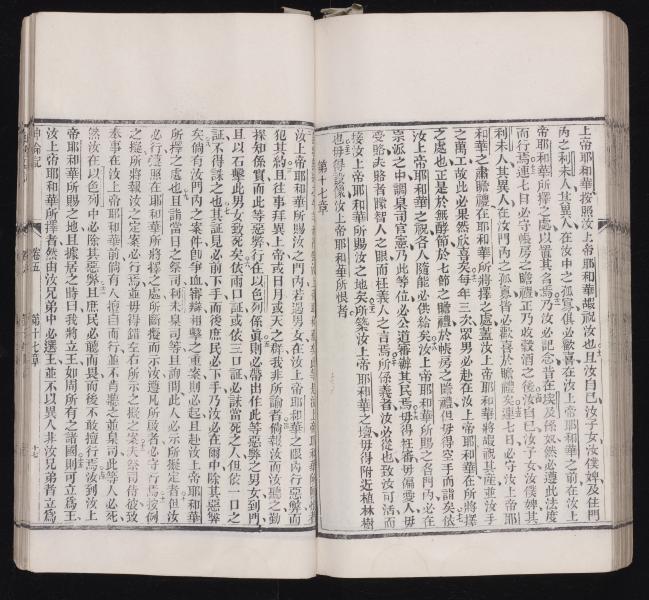 上帝耶和華按照汝上帝耶和華嘏祝汝也汝自己汝子女汝僕婢及住門
內之利未人其異人在汝中之孤寡俱必歡喜在汝上帝耶和華之前在汝上
帝耶和華所擇之處以置其名焉乃汝必記念昔在埃及係奴然必遵此法度
而行焉連七日必守帳房之瞻禮正乃收穀酒之後汝自己汝子女汝僕婢其
利未人其異人在汝門內之孤寡皆必歡喜於瞻禮矣連七日必守汝上帝耶
和華之肅瞻禮在耶和華所將擇之處蓋汝上帝耶和華將嘏祝其產並汝手
之萬工故此必果然欣喜矣每年三次眾男必赴在汝上帝耶和華所將擇
之處也正是於無酵節於七節之瞻禮於帳房之瞻禮但毋得空手而詣矣依
汝上帝耶和華之祝各人隨能必供給矣汝上帝耶和華所賜之各門內必在
宗派之中調臬司官憲乃此等位必公道審辦其民焉毋得枉審毋偏愛人毋
受賂夫賂者矇智人之眼而枉義人之言焉所係義者汝必從也致汝可活而
接汝上帝耶和華所賜汝之地矣所築汝上帝耶和華之壇毋得附近植林樹
也毋得設像汝上帝耶和華所恨者
第十七章
汝上帝耶和華所賜汝之門內若遇男女在汝上帝耶和華之眼內行惡弊而
犯其約且往事拜異上帝或日月或天之群我非所諭者倘報汝而汝聽之勤
探知係實而此等惡弊行在以色列係真則必帶出作此等惡弊之男女到門
且以石擊此男女致死矣依兩口証或依三口証必誅當死之人但依一口之
証不得誅之也其証見必前下手而後庶民必下手乃汝必在爾中除其惡弊
矣倘有汝門內之案件即爭血審辯相擊之重案則必起且赴汝上帝耶和華
所擇之處也且詣當日之祭司利未臬司等且詢問此人必示所擬定者但汝
必行焉照在耶和華所將擇之處所斷擬而示汝遵凡所啟者必守行焉按例
之擬所將報汝之定案必行焉並毋得錯左右所示之擬之案夫祭司侍彼致
奉事在汝上帝耶和華前倘有人擅自而行並不肯聽之並臬司此等人必死
然汝在以色列中必除其惡弊且庶民必聽而畏而後不敢擅行焉汝到汝上
帝耶和華所賜之地且據居之時曰我將立王如周所有之諸國則可立為王
汝上帝耶和華所擇者然由汝兄弟中必選王並不以異人非汝兄弟者立為
申命記 卷五 第十七章 十七